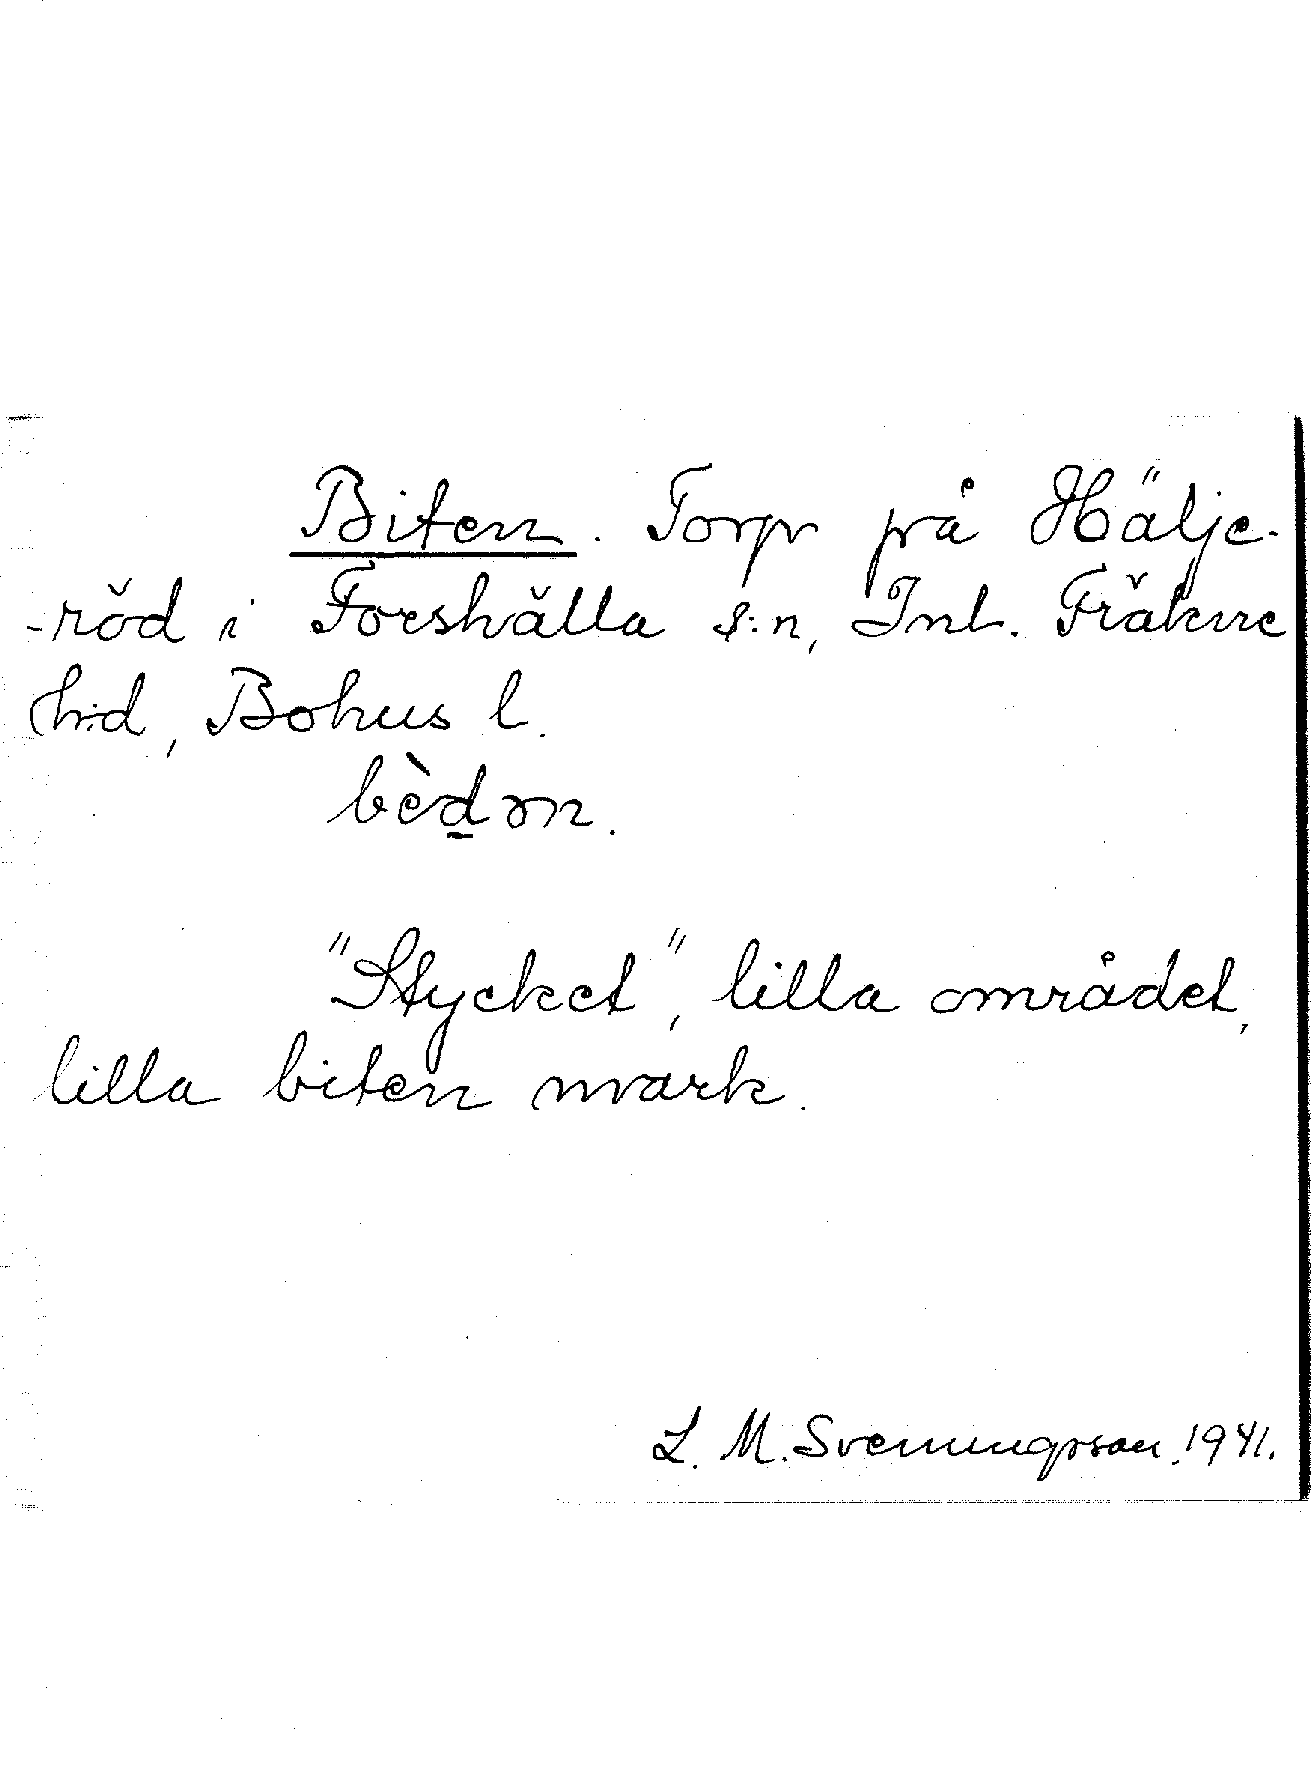 Biten. Torp på Hälje-
-röd i Forshälla s:n, Inl. Fräkne
h:d, Bohus l.
bèd̲ən.
"Stycket", lilla området,
lilla biten mark.
L. M. Svenungsson. 1941.